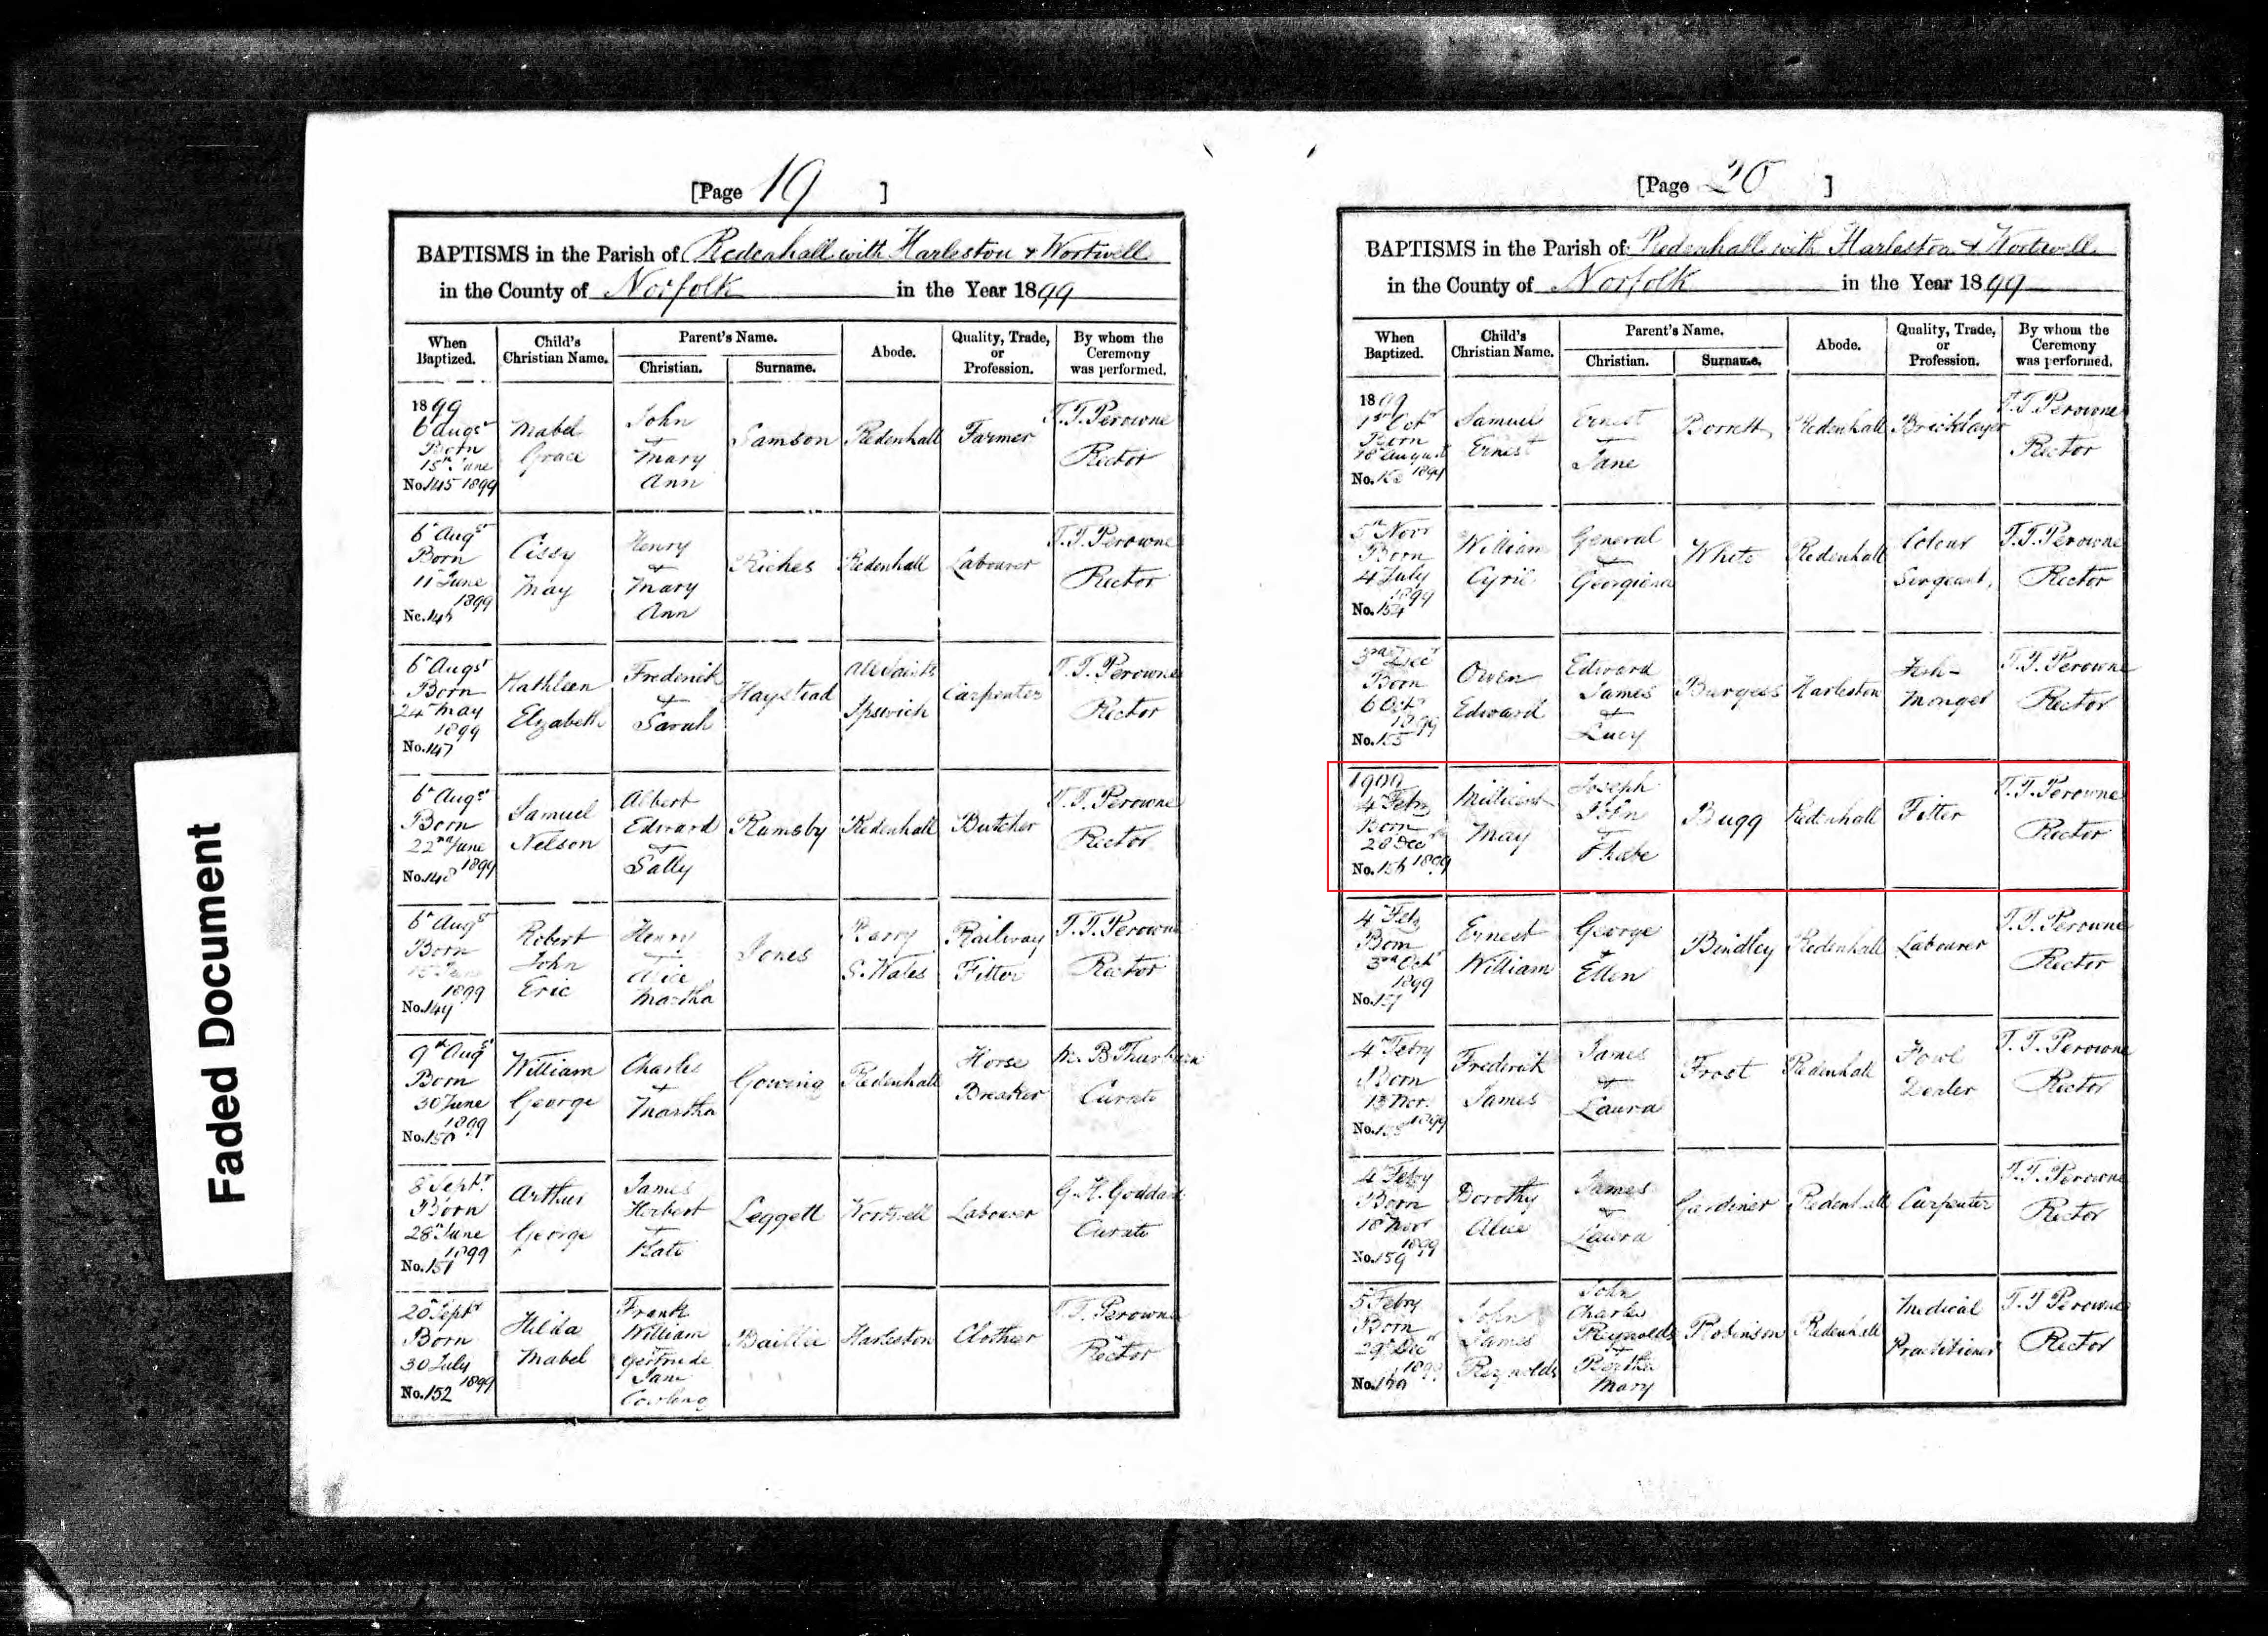 Faded Document
[Page 19 ]
BAPTISMS in the Parish of Redenhall with Harleston & Wortwell
in the County of Norfolk in the Year 1899
When Baptized. Child's Christian Name. Parent's Name. Christian. Surname. Abode. Quality, Trade, or Profession. By whom the Ceremony was performed.
1899 6 Augst Born 15th June 1899 No. 145 Mabel Grace John & Mary Ann Samson Redenhall Farmer T.T. Perowne Rector
6 Augst Born 11 June 1899 No. 146 Cissy May Henry & Mary Ann Riches Redenhall Labourer T.T. Perowne Rector
6 Augst Born 24 May 1899 No. 147 Kathleen Elizabeth Frederick & Sarah Haystead All Saints Ipswich Carpenter T.T. Perowne Rector
6 Augst Born 22nd June 1899 No. 148 Samuel Nelson Albert Edward & Sally Rumsby Redenhall Butcher T.T. Perowne Rector
6 Augst Born 1899 No. 149 Robert John Eric Henry & Alice Martha Jones Barry S. Wales Railway Fitter T.T. Perowne Rector
9th Augst Born 30 June 1899 No. 150 William George Charles & Martha Gowing Redenhall Horse Breaker B Thurburn Curate
8 Septr Born 28 June 1899 No. 151 Arthur George James Herbert & Kate Leggett Wortwell Labourer G. H. Goddard Curate
20 Septr Born 30 July 1899 No. 152 Hilda Mabel Frank William & Gertrude Jane Baillie Harleston Clothier T.T. Perowne Rector
[Page 20 ]
BAPTISMS in the Parish of Redenhall with Harleston & Wortwell
in the County of Norfolk in the Year 1899
When Baptized. Child's Christian Name. Parent's Name. Christian. Surname. Abode. Quality, Trade, or Profession. By whom the Ceremony was performed.
1899 1st Octr Born 18 August 1899 No. 153 Samuel Ernest Ernest & Jane Borrett Redenhall Bricklayer T.T. Perowne Rector
5th Novr Born 4 July 1899 No. 154 William Cyril General & Georgiana White Redenhall Colour Sergeant, T.T. Perowne Rector
3rd Decr Born 6 Octr 1899 No. 155 Owen Edward Edward James & Lucy Burgess Harleston Fish-monger T.T. Perowne Rector
1900 4 Febry Born 28 Decr 1899 No. 156 Millicent May Joseph John & Phoebe Bugg Redenhall Fitter T.T. Perowne Rector
4 Feby Born 3rd Octr 1899 No. 157 Ernest William George & Ellen Bindley Redenhall Labourer T.T. Perowne Rector
4 Febry Born 13 Novr 1899 No. 158 Frederick James James & Laura Frost Redenhall Fowl Dealer T.T. Perowne Rector
4 Febry Born 18 Novr 1899 No. 159 Dorothy Alice James & Laura Gardiner Redenhall Carpenter T.T. Perowne Rector
5 Febry Born 29th Decr 1899 No. 160 John James Reynolds John Charles Reynolds & Bertha Mary Robinson Redenhall Medical Practitioner T.T Perowne Rector